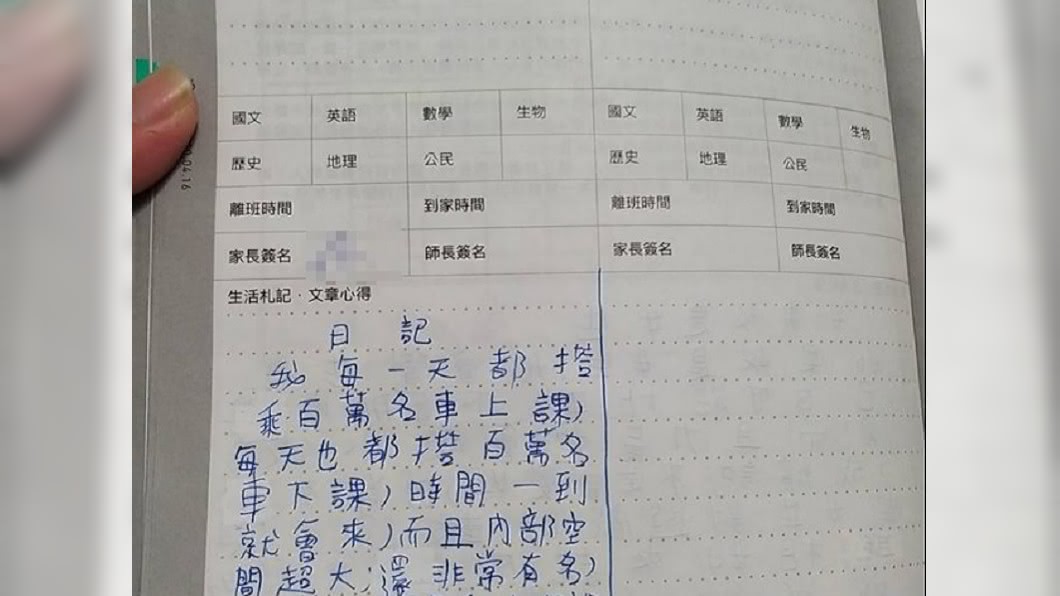 國文 英語 數學 生物 國文 英語 數學 生物
歷史 地理 公民 歷史 地理 公民
離班時間 到家時間 離班時間 到家時間
家長簽名 師長簽名 家長簽名 師長簽名
生活札記・文章心得
日記
我每一天都搭
乘百萬名車上課,
每天也都搭百萬名
車下課,時間一到
就會來,而且內部空
間超大,還非常有名,